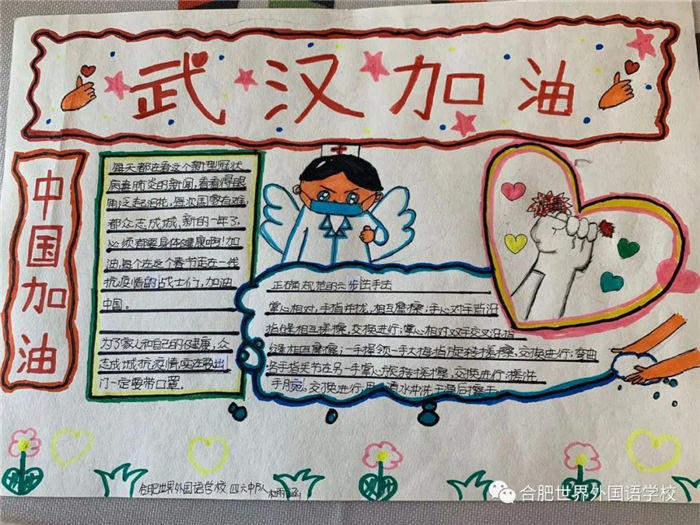 武汉加油
中国加油
每天都在看这个新型冠状
病毒肺炎的新闻,看着得眼
泪泛起泪花,每次国家有难
都众志成城,新的一年了,
必须都要身体健康啊!加
油,每个在这个春节走在一线
抗疫情的战士们,加油
中国。
为了家人和自己的健康,众
志成城抗疫情,实在要出
门一定要带口罩。
正确规范的六步洗手法
掌心相对,手指并拢,相互磨擦;手心对手背沿
指缝相互搓擦,交换进行;掌心相对双手交叉沿指
缝相互磨擦;一手握领一手大拇指旋转搓擦,交换进行;弯曲
各手指关节在另一手掌心旋转搓擦,交换进行;搓洗
手腕,交换进行,用清水冲洗干最后擦手
合肥世界外国语学校 四六中队
合肥世界外国语学校